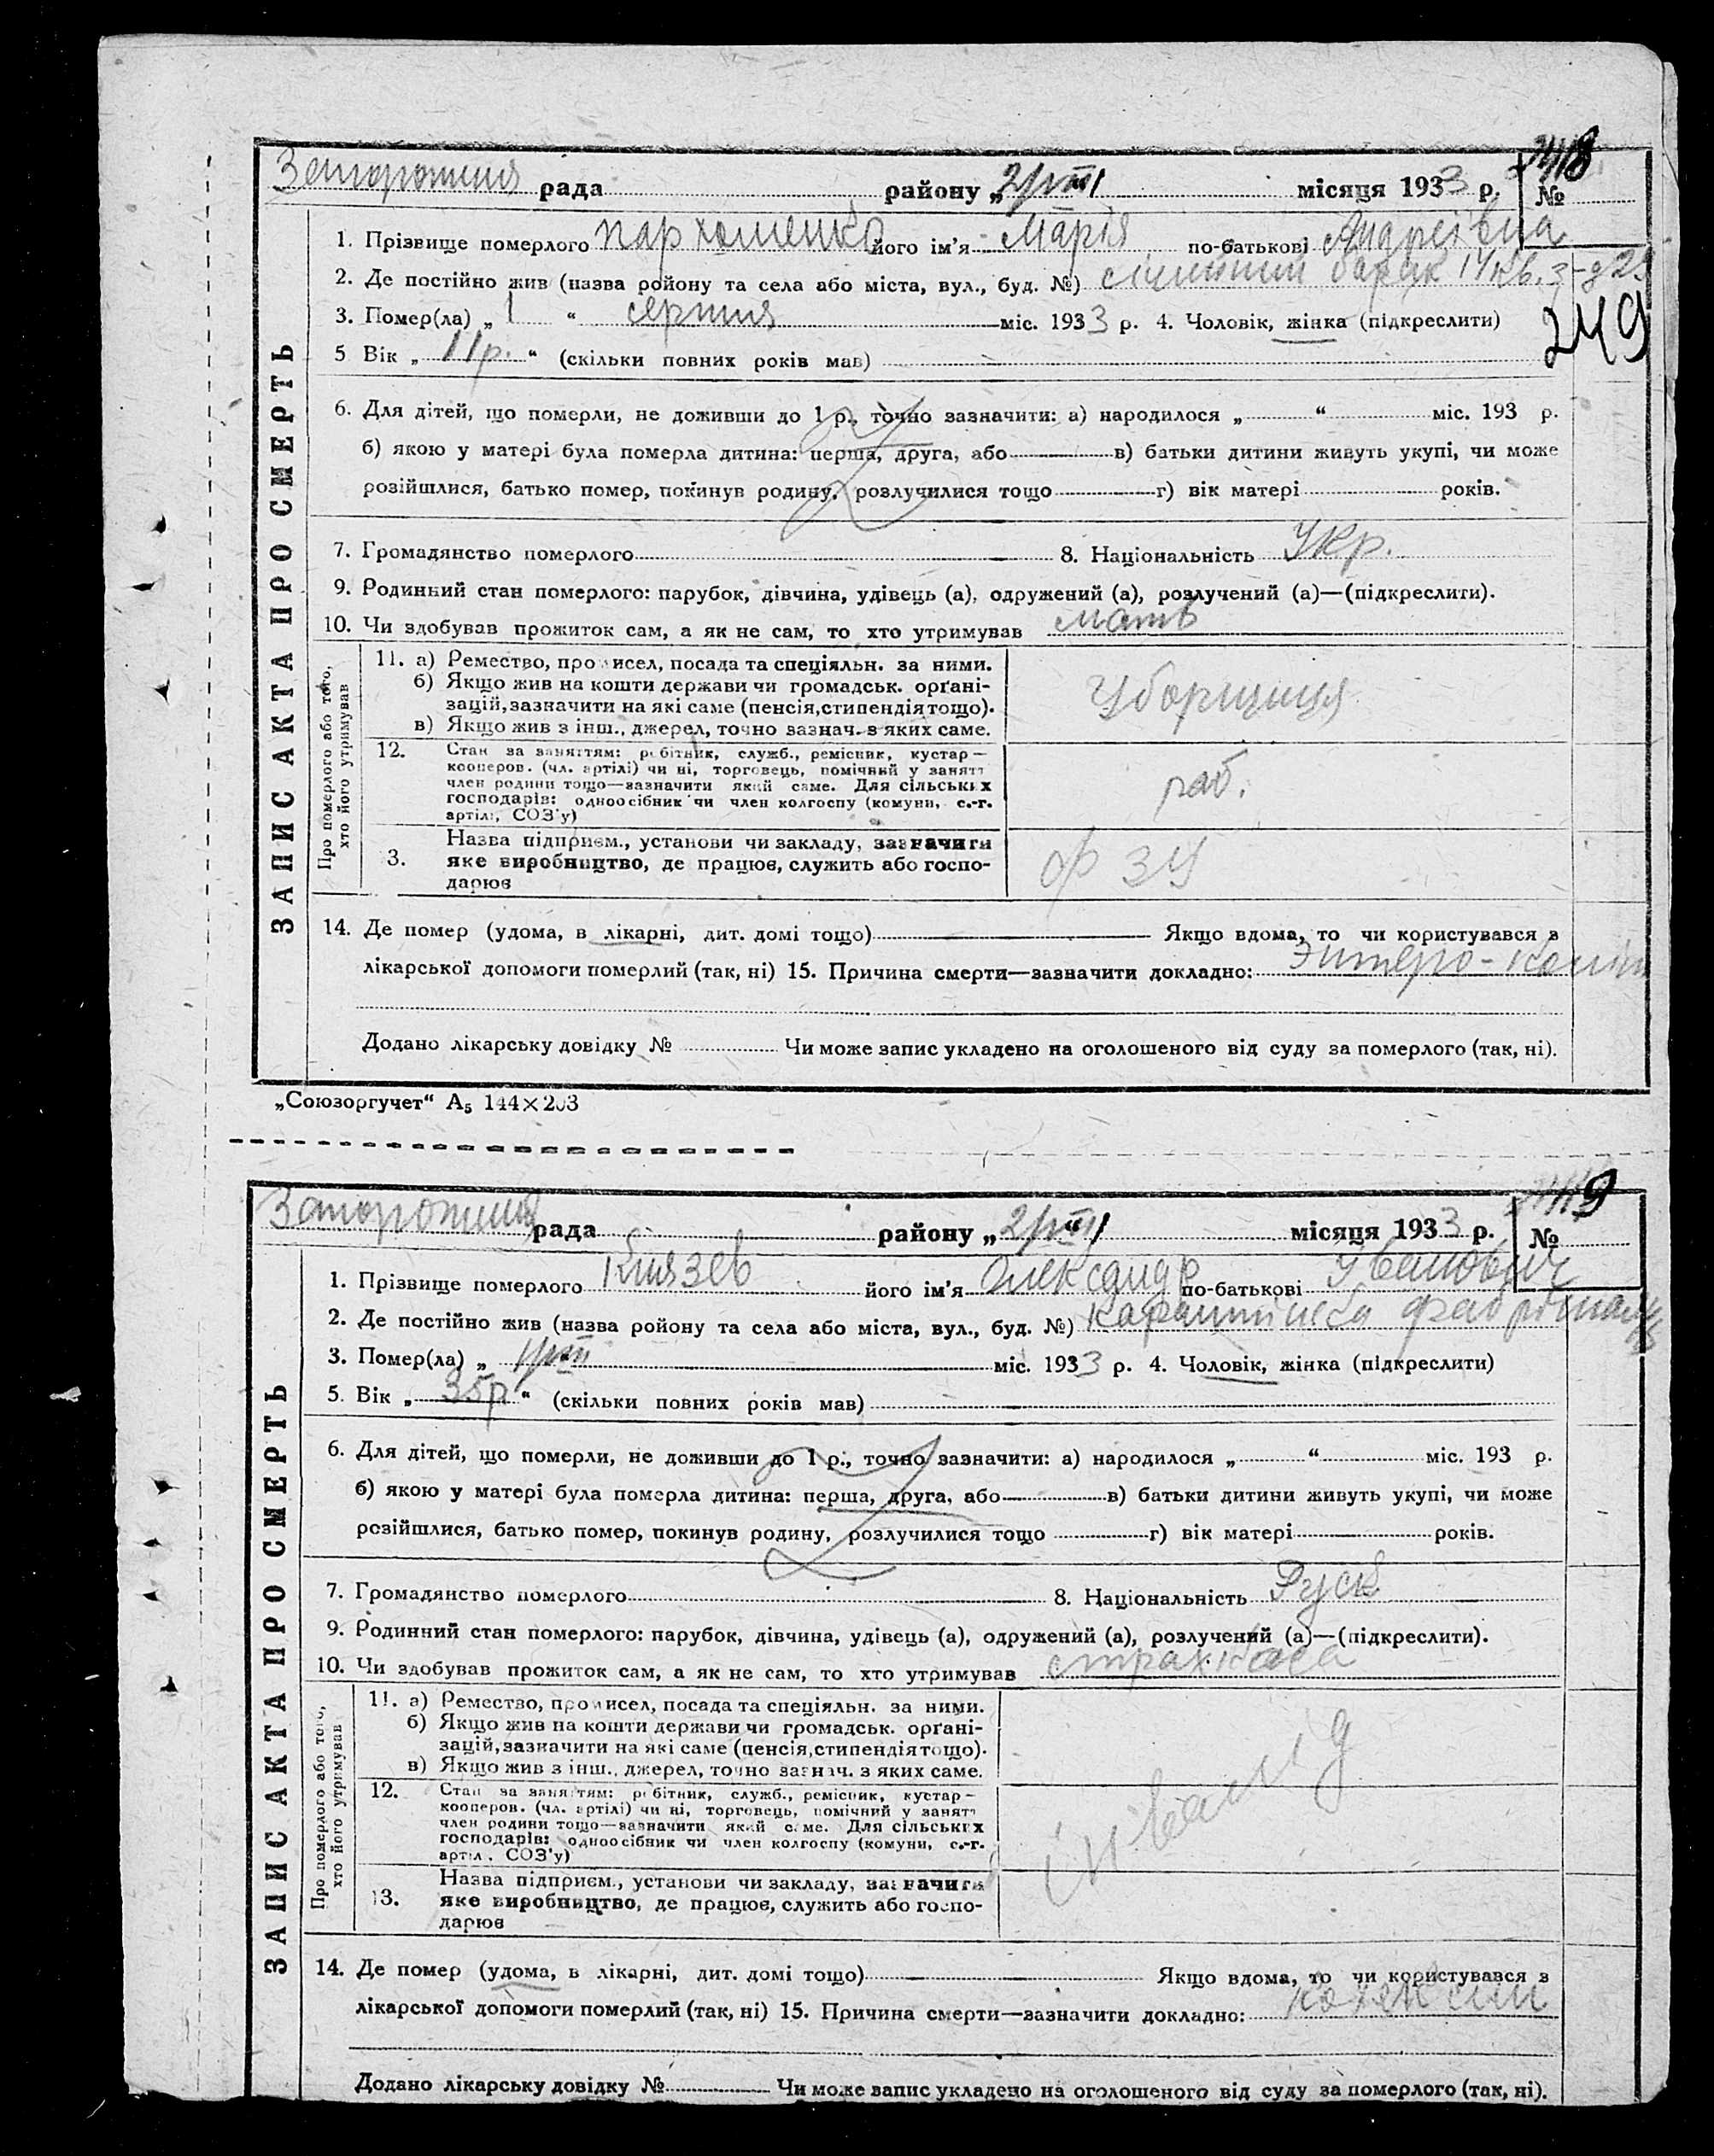 Запоріжжя рада району „2/VIII“ місяця 1933 р. № 2418
1. Прізвище померлого Пархоменко його ім’я Марія по-батькові Андреївна
2. Де постійно жив (назва ройону та села або міста, вул., буд. №) барак 14 кв. 3
249
3. Помер(ла) „ 1 “ серпня міс. 1933 р. 4. Чоловік, жінка (підкреслити)
5 Вік „ 11 р. “ (скільки повних років мав)
6. Для дітей, що померли, не доживши до 1 р., точно зазначити: а) народилося „ “ міс. 193 р.
б) якою у матері була померла дитина: перша, друга, або в) батьки дитини живуть укупі, чи може
розійшлися, батько помер, покинув родину, розлучилися тощо г) вік матері років.
7. Громадянство померлого 8. Національність Укр.
9. Родинний стан померлого: парубок, дівчина, удівець (а), одружений (а), розлучений (а)—(підкреслити).
10. Чи здобував прожиток сам, а як не сам, то хто утримував мать
ЗАПИС АКТА ПРО СМЕРТЬ
Про померлого або того, хто його утримував
11. а) Ремество, промисел, посада та спеціяльн. за ними.
б) Якщо жив на кошти держави чи громадськ. орґані-
зацій, зазначити на які саме (пенсія, стипендія тощо).
в) Якщо жив з інш., джерел, точно зазнач. з яких саме.
Уборщиця
12. Стан за заняттям: робітник, служб., ремісник, кустар—
кооперов. (чл. артілі) чи ні, торговець, помічний у занятт
член родини тощо—зазначити який саме. Для сільських
господарів: одноосібник чи член колгоспу (комуни, с.-г.
артілі, СОЗ’у)
раб.
Назва підприєм., установи чи закладу, зазначити
3. яке виробництво, де працює, служить або госпо-
дарює
ФЗУ
14. Де помер (удома, в лікарні, дит. домі тощо) Якщо вдома, то чи користувався з
лікарської допомоги померлий (так, ні) 15. Причина смерти—зазначити докладно: Энтеро-колит
Додано лікарську довідку № Чи може запис укладено на оголошеного від суду за померлого (так, ні).
„Союзоргучет“ А₅ 144×203
Запоріжжя рада району „2/VIII“ місяця 1933 р. № 2419
1. Прізвище померлого Князев його ім’я Олександр по-батькові Іванович
2. Де постійно жив (назва ройону та села або міста, вул., буд. №)
3. Помер(ла) „ 1/VIII міс. 1933 р. 4. Чоловік, жінка (підкреслити)
5. Вік „ 35 р “ (скільки повних років мав)
6. Для дітей, що померли, не доживши до 1 р., точно зазначити: а) народилося „ “ міс. 193 р.
б) якою у матері була померла дитина: перша, друга, або в) батьки дитини живуть укупі, чи може
розійшлися, батько помер, покинув родину, розлучилися тощо г) вік матері років.
7. Громадянство померлого 8. Національність Руск
9. Родинний стан померлого: парубок, дівчина, удівець (а), одружений (а), розлучений (а)—(підкреслити).
10. Чи здобував прожиток сам, а як не сам, то хто утримував страхкаса
ЗАПИС АКТА ПРО СМЕРТЬ
Про померлого або того, хто його утримував
11. а) Ремество, промисел, посада та спеціяльн. за ними.
б) Якщо жив на кошти держави чи громадськ. орґані-
зацій, зазначити на які саме (пенсія, стипендія тощо).
в) Якщо жив з інш., джерел, точно зазнач. з яких саме.
12. Стан за заняттям: робітник, служб., ремісник, кустар—
кооперов. (чл. артілі) чи ні, торговець, помічний у занятт
член родини тощо—зазначити який саме. Для сільських
господарів: одноосібник чи член колгоспу (комуни, с.-г.
артіл, СОЗ’у)
інвалід
Назва підприєм., установи чи закладу, зазначити
13. яке виробництво, де працює, служить або госпо-
дарює
14. Де помер (удома, в лікарні, дит. домі тощо) Якщо вдома, то чи користувався з
лікарської допомоги померлий (так, ні) 15. Причина смерти—зазначити докладно:
Додано лікарську довідку № Чи може запис укладено на оголошеного від суду за померлого (так, ні).